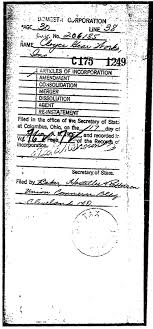 DOMESTIC CORPORATION
PAGE 30 LINE 38
No. 206185
NAME Cloyes Gear Works,
Inc.
C175 1249
ARTICLES OF INCORPORATION
AMENDMENT
CONSOLIDATION
MERGER
DISSOLUTION
AGENT
RE-INSTATEMENT
Filed in the office of the Secretary of State
at Columbus, Ohio, on the day of
and recorded in
of the Records of
Incorporations.
Secretary of State.
Filed by Baker, Hostetler & Patterson
Union Commerce Bldg
Cleveland
TAX